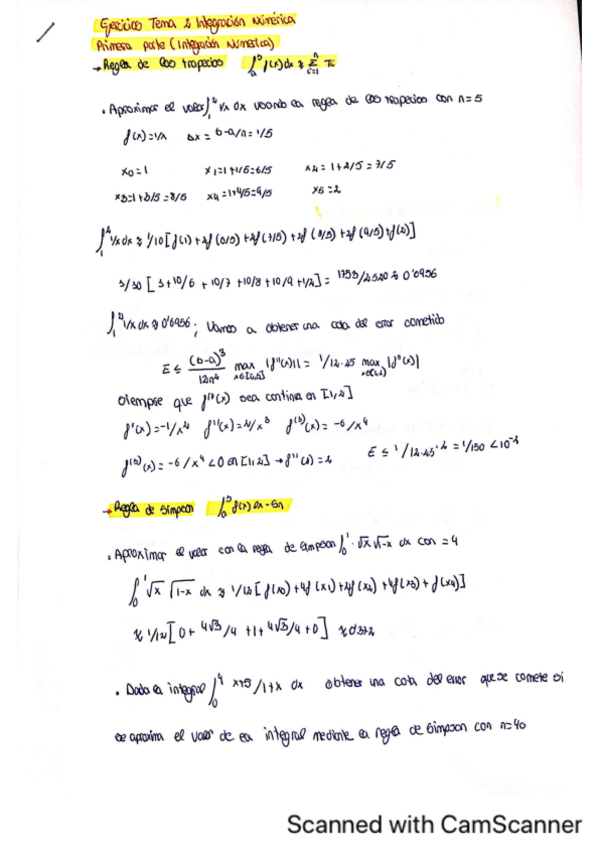 Ejercicios Tema 2 Integración Numérica
Primera parte (Integración Numérica)
→ Regla de los trapecios ∫_a^b f(x)dx ≈ Σ_{i=1}^n Ti
• Aproximar el valor ∫_1^2 1/x dx usando la regla de los trapecios con n=5
f(x)=1/x Δx = b-a/n = 1/5
x0=1 x1=1+1/5=6/5 x2=1+2/5=7/5
x3=1+3/5=8/5 x4=1+4/5=9/5 x5=2
∫_1^2 1/x dx ≈ 1/10 [f(1)+2f(6/5)+2f(7/5)+2f(8/5)+2f(9/5)+f(2)]
+10/6 + 10/7 +10/8 +10/9 +1/2] = ≈ 0'6956
∫_1^2 1/x dx ≈ 0'6956; Vamos a obtener una cota del error cometido
E ≤ (b-a)^3/12n^2 max |f''(x)| = 1/12·25 max |f''(x)|
siempre que f''(x) sea continua en [1,2]
f'(x)=-1/x^2 f''(x)=2/x^3 f^(3)(x)=-6/x^4
f^(3)(x)=-6/x^4 <0 en [1,2] → f''( )=2 E ≤ 1/12·25·2 = 1/150 <10^-2
→ Regla de Simpson f(x)dx Sn
• Aproximar el valor con la regla de Simpson ∫_0^1 √x √1-x dx con =4
∫_0^1 √x √1-x dx ≈ 1/12 [f(x0)+4f(x1)+2f(x2)+4f(x3)+f(x4)]
≈ 1/12 [0+ 4√3/4 +1+4√3/4+0] ≈
• Dada la integral ∫_0^4 x+5/1+x dx obtener una cota del error que se comete si
se aproxima el valor de la integral mediante la regla de Simpson con n=40
Scanned with CamScanner